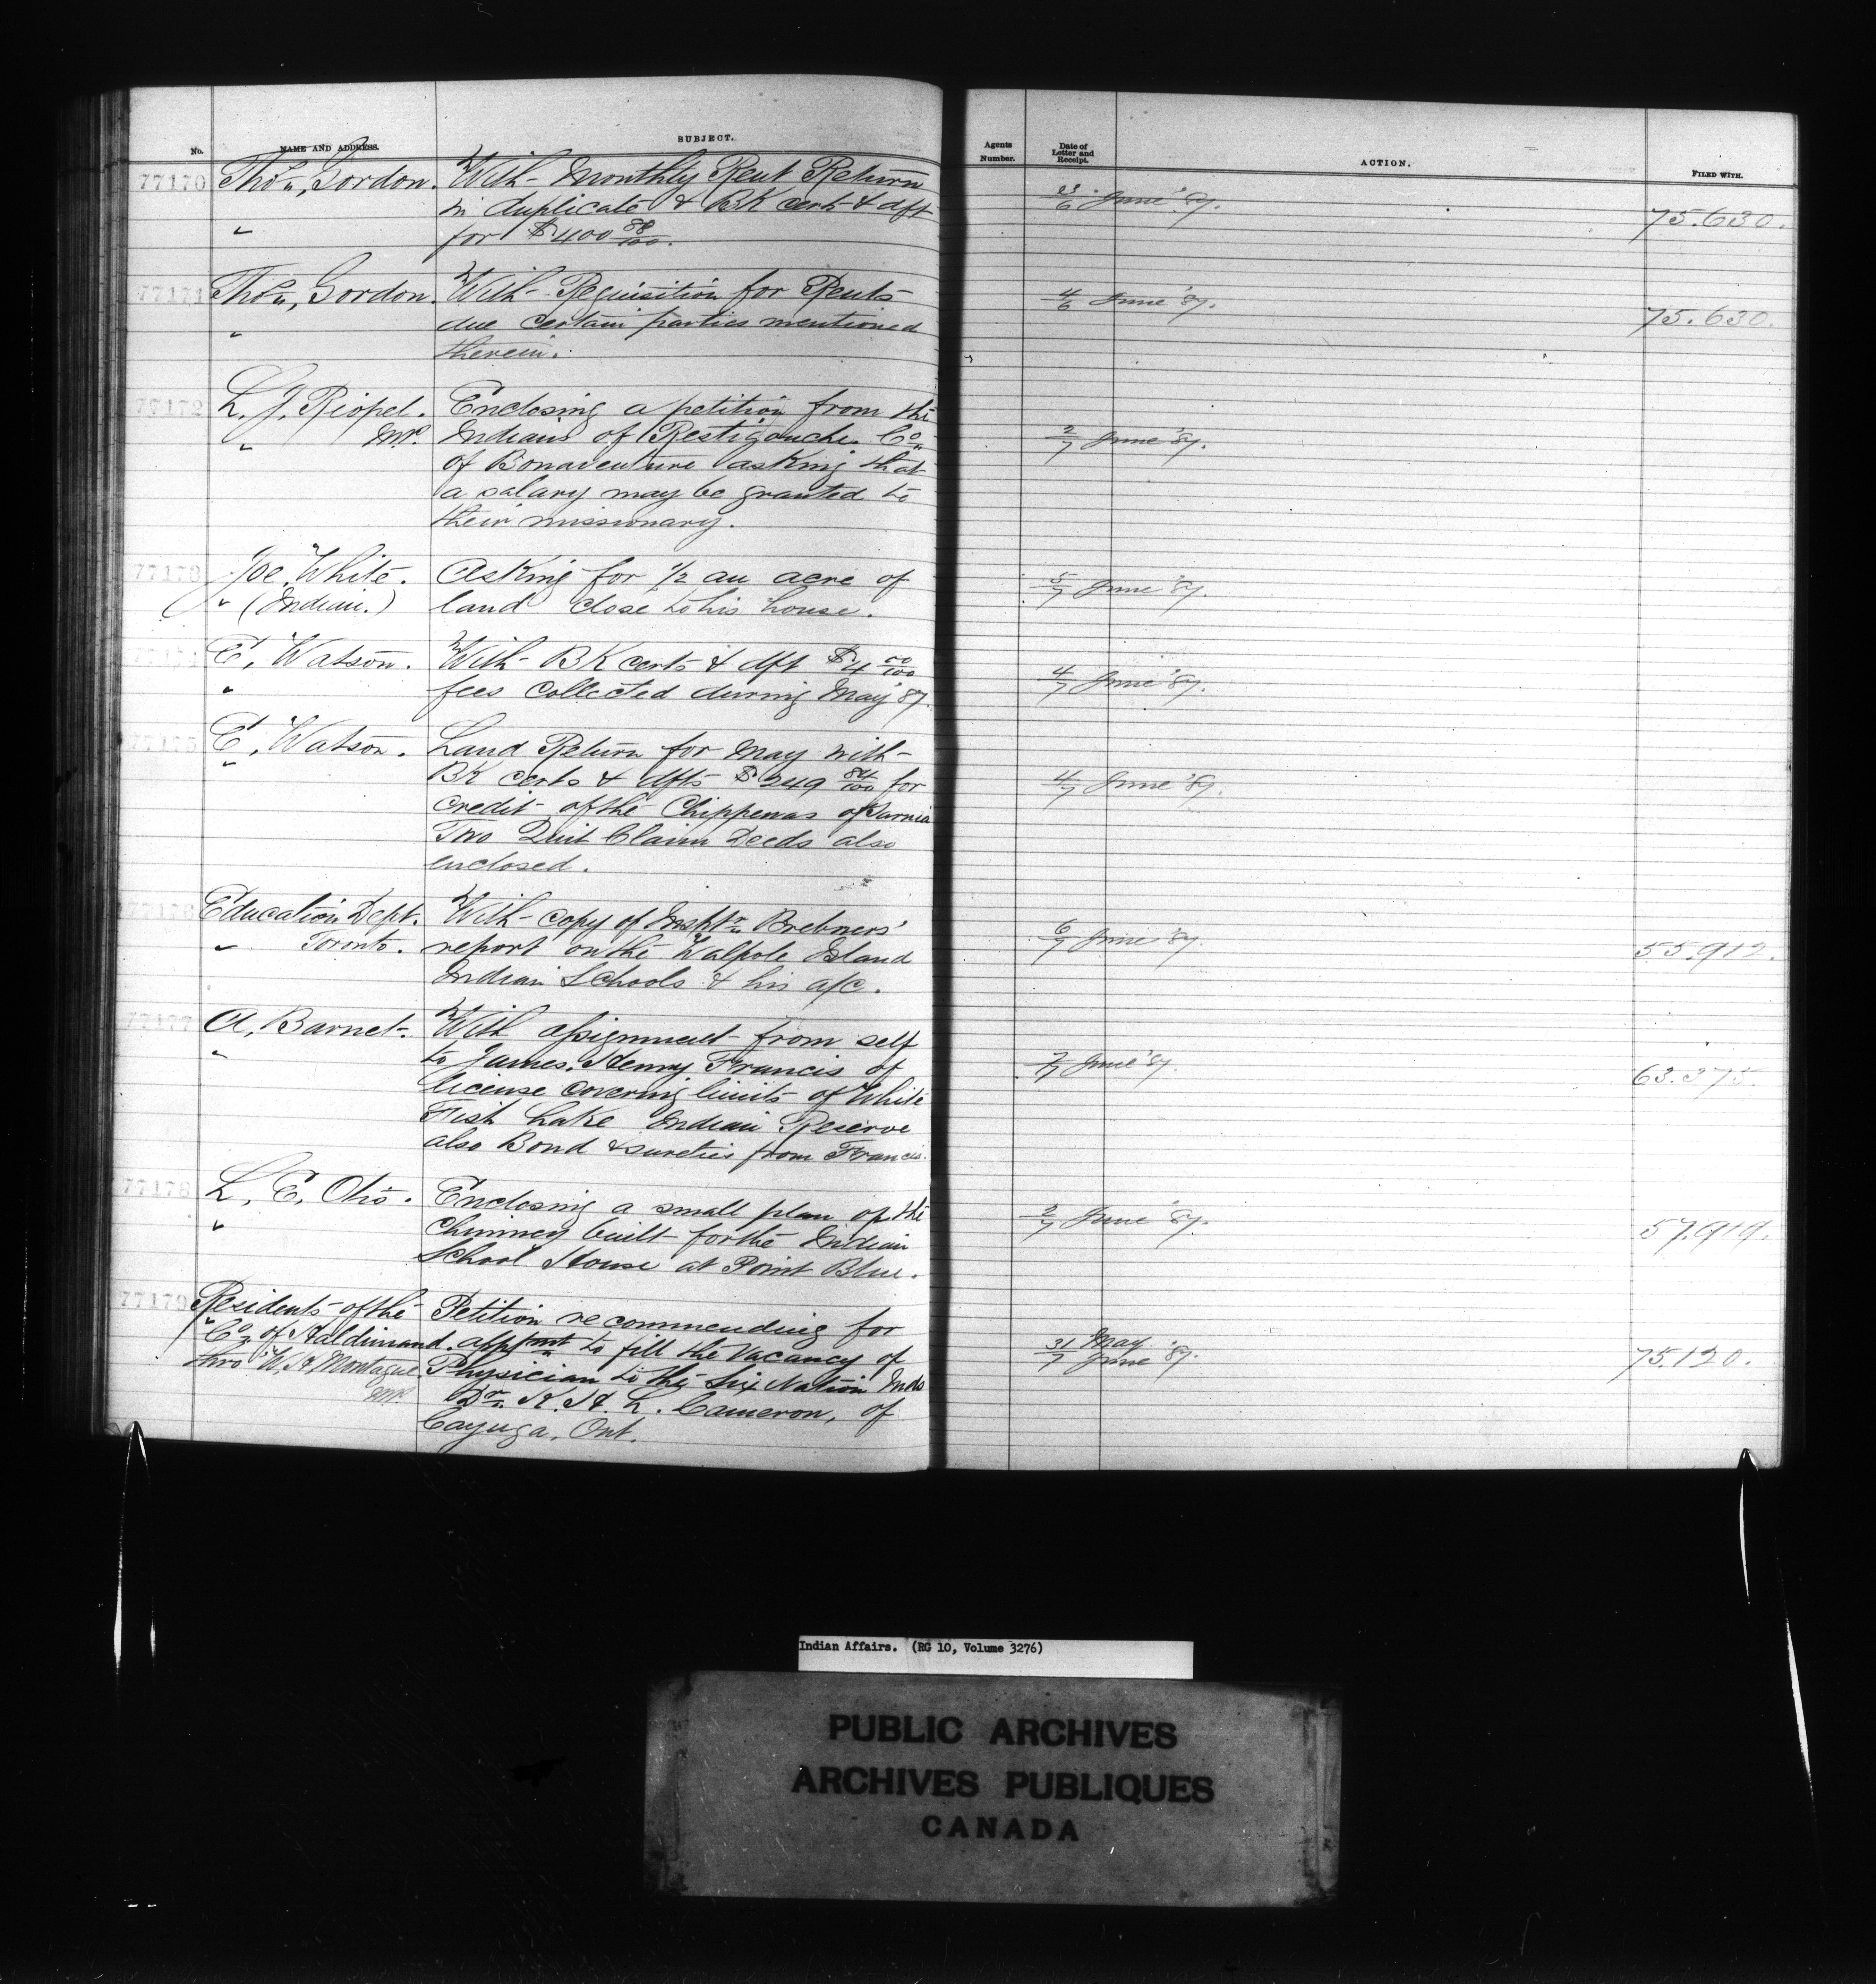 No. NAME AND ADDRESS. SUBJECT. Agents Number. Date of Letter and Receipt. ACTION. FILED WITH.
77170 Thos., Gordon. With Monthly Rent Return 3/6 June '87. 75.630.
in duplicate & BK cert & dft
" for $400 88/100.
77171 Thos., Gordon. With Requisition for Rents 4/6 June '87. 75.630.
" due certain parties mentioned
therein.
77172 L. J. Riopel. Enclosing a petition from the
" M.P. Indians of Restigouche Co. 2/7 June '87.
of Bonaventure asking that
a salary may be granted to
their missionary.
77173 Joe White. Asking for 1/2 an acre of 5/7 June '87.
" (Indian.) land close to his house.
77174 E, Watson. With BK certs & dft $4 00/100 4/7 June '87.
" fees collected during May '87.
77175 E, Watson. Land Return for May with
" BK certs & dfts $249 84/100 for 4/7 June '87.
credit of the Chippewas of Sarnia
Two Quit Claim Deeds also
enclosed.
77176 Education Dept. With copy of Inspt'r Brebners' 6/7 June '87. 55.912.
" Toronto. report on the Walpole Island
Indian Schools & his a/c.
77177 A, Barnet. With assignment from self 7/7 June '87. 63.375.
" to James, Henry Francis of
license covering limits of White
Fish Lake Indian Reserve
also Bond & sureties from Francis.
77178 L, E, Otis. Enclosing a small plan of the 2/7 June '87. 57.919.
" Chimney built for the Indian
School House at Point Blue.
77179 Residents of the Petition recommending for
" Co. of Haldimand. appmt to fill the Vacancy of 31/7 May June '87. 75.120.
thro W, H Montague Physician to the Six Nation Inds
MP. Dr. K. H. L. Cameron, of
Cayuga, Ont.
Indian Affairs. (RG 10, Volume 3276)
PUBLIC ARCHIVES
ARCHIVES PUBLIQUES
CANADA